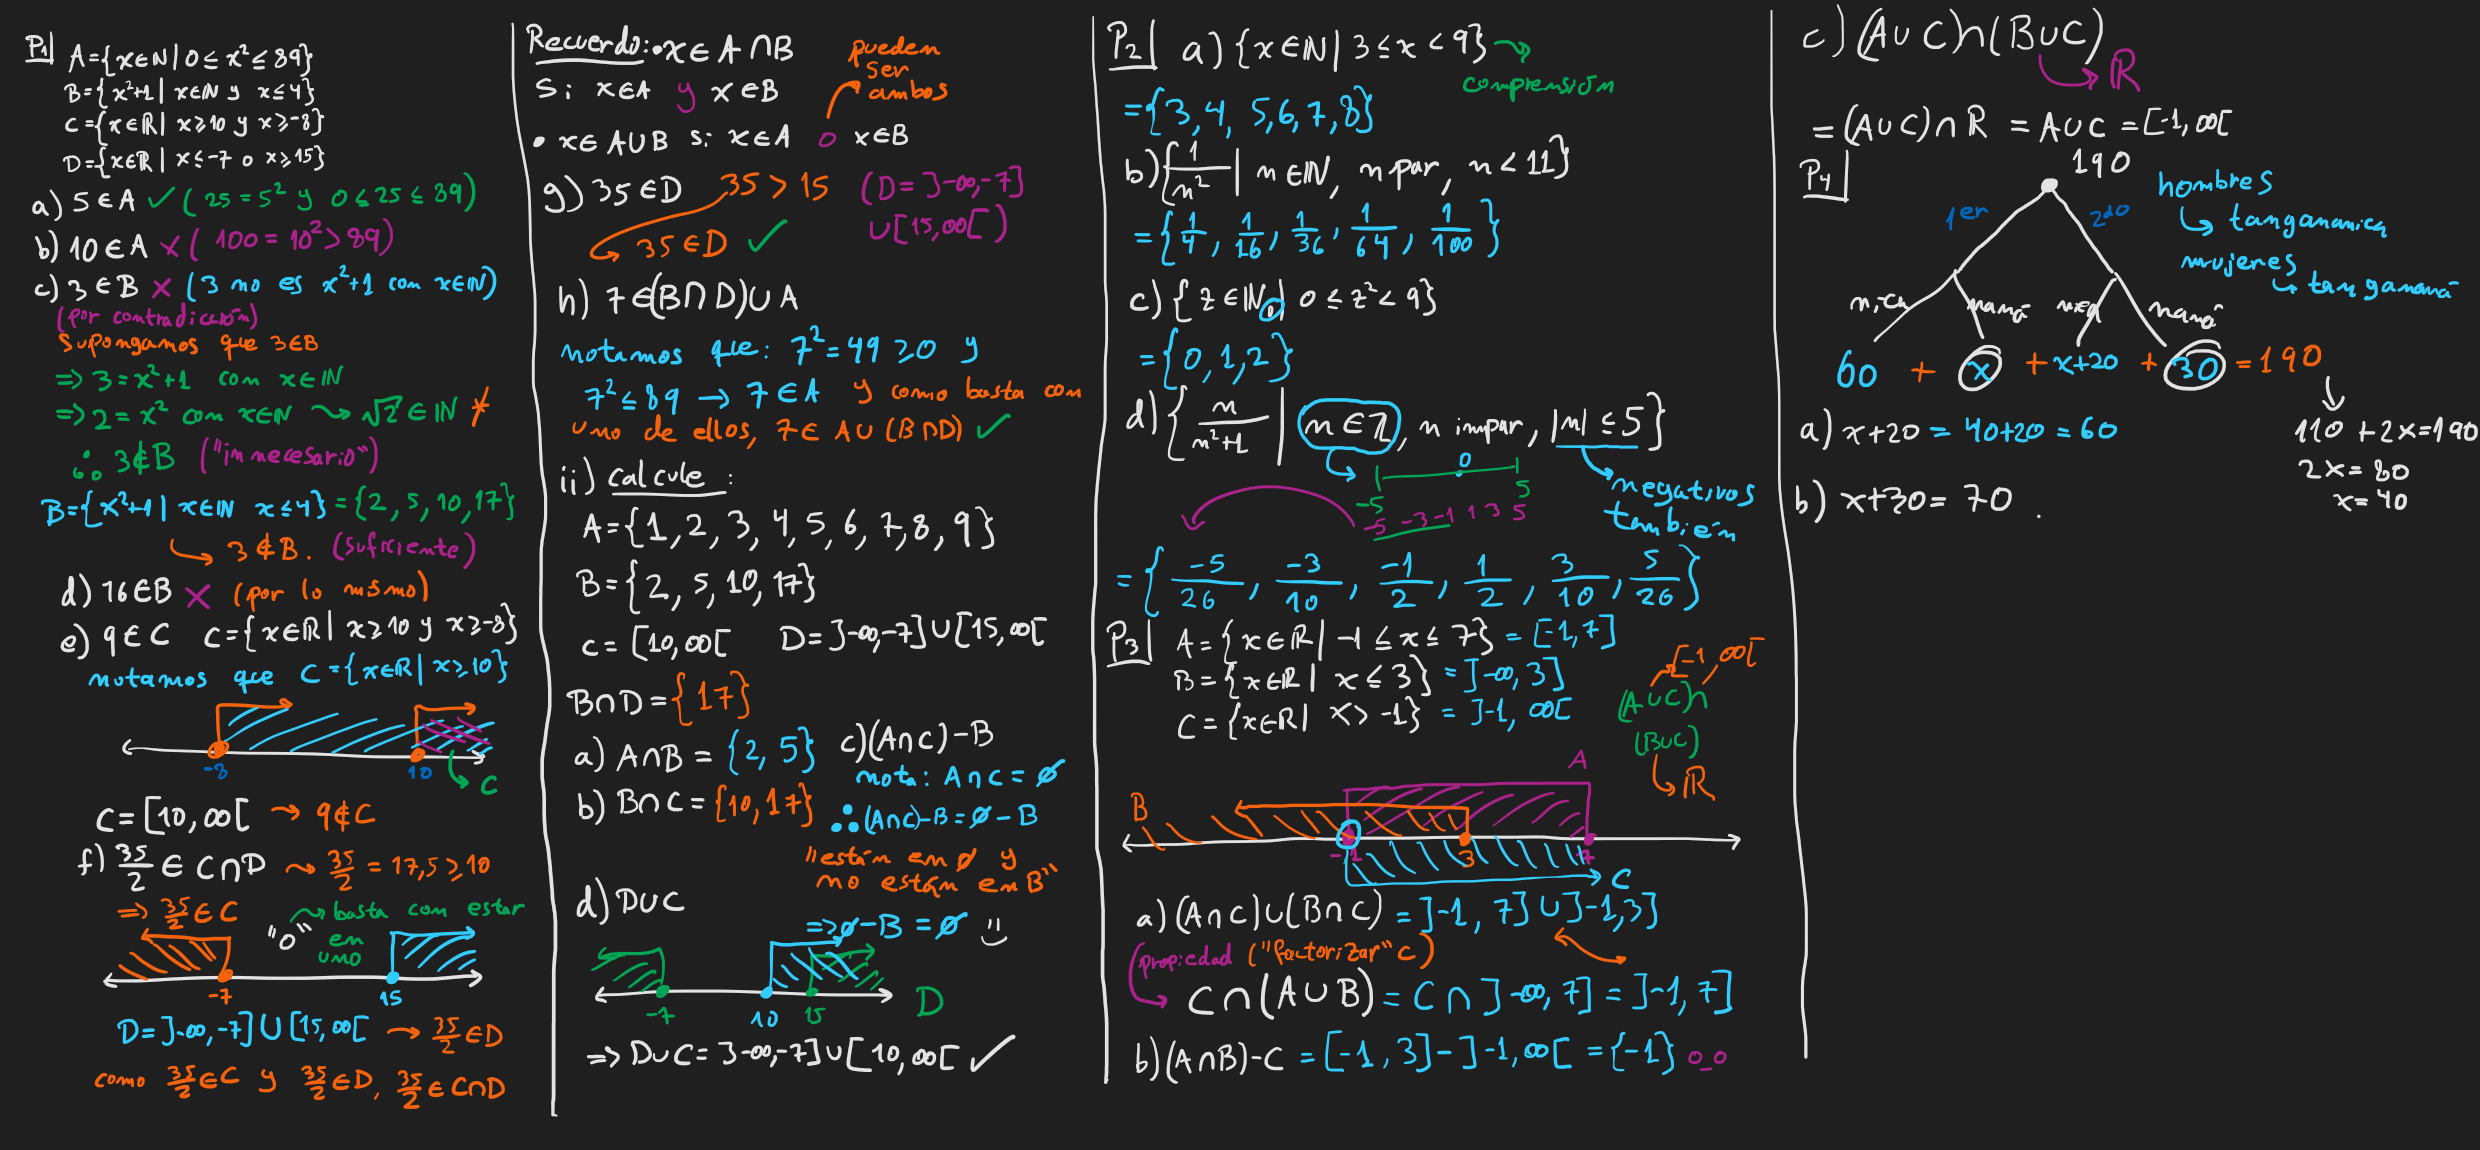 P1| A={x∈ℕ | 0 ≤ x² ≤ 89}
B={x²+1 | x∈ℕ y x≤4}
C={x∈ℝ | x≥10 y x≥-8}
D={x∈ℝ | x≤-7 o x≥15}
a) 5∈A ✓ (25=5² y 0≤25≤89)
b) 10∈A × (100=10²>89)
c) 3∈B × (3 no es x²+1 con x∈ℕ)
(por contradicción)
Supongamos que 3∈B
⇒ 3=x²+1 con x∈ℕ
⇒ 2=x² con x∈ℕ ⇝ √2∈ℕ
∴ 3∉B ("innecesario")
B={x²+1 | x∈ℕ x≤4}={2, 5, 10, 17}
↳ 3∉B. (suficiente)
d) 16∈B × (por lo mismo)
e) 9∈C C={x∈ℝ | x≥10 y x≥-8}
notamos que C={x∈ℝ | x≥10}
-8 10 C
C=[10,∞[ → 9∉C
f) 35/2 ∈ C∩D ⇝ 35/2 = 17,5≥10
⇒ 35/2∈C
"o" ⇝ basta con estar
en
uno
-7 15
D=]-∞,-7]∪[15,∞[ → 35/2∈D
como 35/2∈C y 35/2∈D, 35/2∈C∩D
Recuerdo: • x∈A∩B
Si x∈A y x∈B
pueden
ser
ambos
• x∈A∪B si x∈A o x∈B
g) 35∈D 35>15 (D=]-∞,-7]
∪[15,∞[)
35∈D ✓
h) 7∈(B∩D)∪A
notamos que: 7²=49≥0 y
7²≤89 → 7∈A y como basta con
uno de ellos, 7∈A∪(B∩D) ✓
ii) Calcule:
A={1, 2, 3, 4, 5, 6, 7, 8, 9}
B={2, 5, 10, 17}
C=[10,∞[ D=]-∞,-7]∪[15,∞[
B∩D={17}
a) A∩B={2, 5}
b) B∩C={10, 17}
c) (A∩C)-B
nota: A∩C=∅
∴ (A∩C)-B=∅-B
"están en ∅ y
no están en B"
⇒ ∅-B=∅
d) D∪C
-7 10 15 D
⇒ D∪C=]-∞,-7]∪[10,∞[ ✓
P2| a) {x∈ℕ | 3≤x<9} ⇝ comprensión
={3, 4, 5, 6, 7, 8}
b) {1/n² | n∈ℕ, n par, n<11}
={1/4, 1/16, 1/36, 1/64, 1/100}
c) {z∈ℕ₀ | 0≤z²<9}
={0, 1, 2}
d) {n/n²+1 | n∈ℤ, n impar, |n|≤5}
-5 0 5
negativos
también
-5 -3 -1 1 3 5
={-5/26, -3/10, -1/2, 1/2, 3/10, 5/26}
P3| A={x∈ℝ | -1≤x≤7}=[-1,7]
B={x∈ℝ | x≤3}=]-∞,3]
C={x∈ℝ | x>-1}=]-1,∞[
[-1,∞[
(A∪C)∩
(B∪C)
↳ ℝ
A
B
-1 3 7
C
a) (A∩C)∪(B∩C)=]-1,7]∪]-1,3]
propiedad ("factorizar" C)
C∩(A∪B)=C∩]-∞,7]=]-1,7]
b) (A∩B)-C=[-1,3]-]-1,∞[={-1} o_o
c) (A∪C)∩(B∪C)
↳ ℝ
=(A∪C)∩ℝ=A∪C=[-1,∞[
P4| 190
1er 2do
hombres
↳ tangananica
mujeres
↳ tanganana
nica nana nica nana
60 + x + x+20 + 30 = 190
110+2x=190
2x=80
x=40
a) x+20=40+20=60
b) x+30=70.